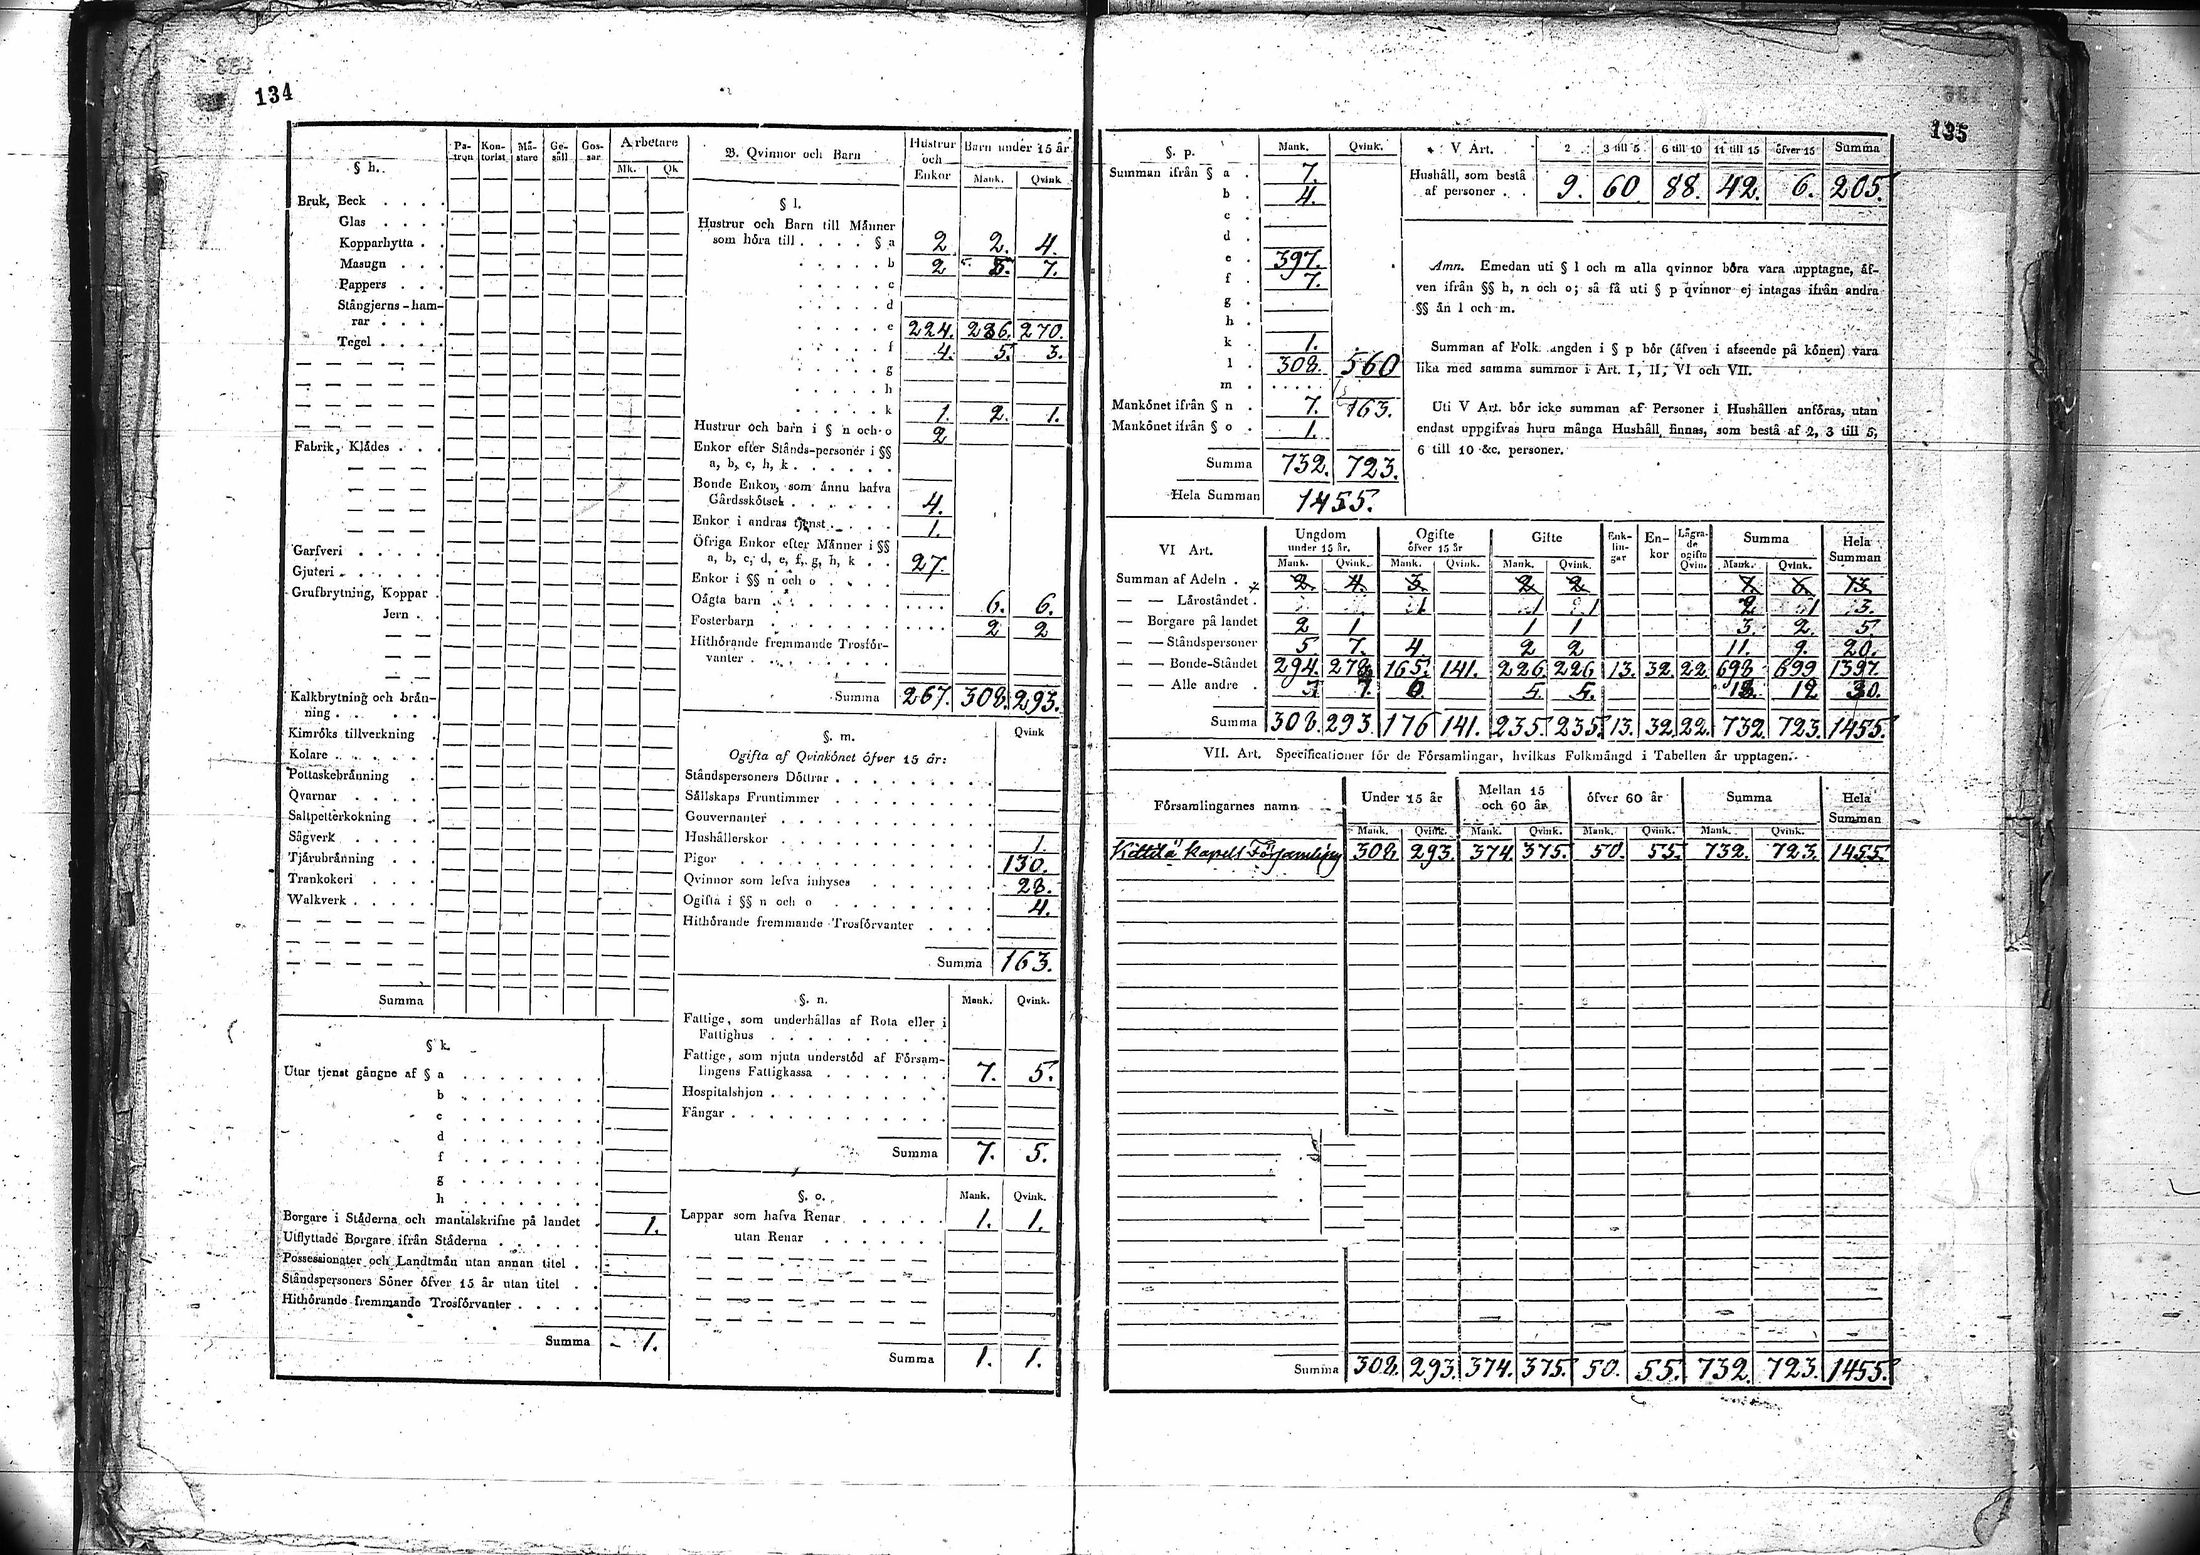 134
§ h.
Patron Kontorist Mästare Gesäll Gossar Arbetare
Mk. Qk
Bruk, Beck . . . .
Glas . . . .
Kopparhytta . .
Masugn . . .
Pappers . . .
Stångjerns-hamrar . . . .
Tegel . . . .
Fabrik, Klädes . . .
Garfveri . . . . .
Gjuteri . . . . .
Grufbrytning, Koppar .
Jern . .
Kalkbrytning och bränning . . . . .
Kimröks tillverkning .
Kolare . . . . .
Pottaskebränning . .
Qvarnar . . . . .
Saltpetterkokning . .
Sågverk . . . . .
Tjärubränning . . .
Trankokeri . . . .
Walkverk . . . . .
Summa
§ k.
Utur tjenst gångne af § a . . . . . . .
b . . . . . . .
c . . . . . . .
d . . . . . . .
f . . . . . . .
g . . . . . . .
h . . . . . . .
Borgare i Städerna och mantalskrifne på landet . 1.
Utflyttade Borgare ifrån Städerna . . . . .
Possessionater och Landtmän utan annan titel . .
Ståndspersoners Söner öfver 15 år utan titel . .
Hithörande fremmande Trosförvanter . . . . .
Summa 1.
B. Qvinnor och Barn
Hustrur och Enkor Barn under 15 år
Mank. Qvink
§ l.
Hustrur och Barn till Männer
som höra till . . . . § a 2 2. 4.
b 2 5. 7.
c
d
e 224. 286. 270.
f 4. 5. 3.
g
h
k 1. 2. 1.
Hustrur och barn i § n och o 2
Enkor efter Stånds-personer i §§
a, b, c, h, k . . . . . .
Bonde Enkor, som ännu hafva
Gårdsskötsel . . . . . . 4.
Enkor i andras tjenst . . . . 1.
Öfriga Enkor efter Männer i §§
a, b, c, d, e, f, g, h, k . . 27.
Enkor i §§ n och o . . . .
Oägta barn . . . . . . . . . . . 6. 6.
Fosterbarn . . . . . . . . . . . 2 2
Hithörande fremmande Trosförvanter . . . . . . .
Summa 267. 308. 293.
§. m.
Qvink
Ogifta af Qvinkönet öfver 15 år:
Ståndspersoners Döttrar . . . . . . . .
Sällskaps Fruntimmer . . . . . . . .
Gouvernanter . . . . . . . . . .
Hushållerskor . . . . . . . . . . 1.
Pigor . . . . . . . . . . . . 130.
Qvinnor som lefva inhyses . . . . . . . 28.
Ogifta i §§ n och o . . . . . . . . 4.
Hithörande fremmande Trosförvanter . . . .
Summa 163.
§. n.
Mank. Qvink.
Fattige, som underhållas af Rota eller i
Fattighus . . . . . . . . .
Fattige, som njuta understöd af Församlingens Fattigkassa . . . . . . . 7. 5.
Hospitalshjon . . . . . . . . .
Fångar . . . . . . . . . . .
Summa 7. 5.
§. o.
Mank. Qvink.
Lappar som hafva Renar . . . . . 1. 1.
utan Renar . . . . . .
Summa 1. 1.
135
§. p.
Mank. Qvink.
Summan ifrån § a . 7.
b . 4.
c .
d .
e . 397.
f . 7.
g .
h .
k . 1.
l . 308. 560
m . . . . . 163.
Mankönet ifrån § n . 7.
Mankönet ifrån § o . 1.
Summa 732. 723.
Hela Summan 1455.
V Art.
2 3 till 5 6 till 10 11 till 15 öfver 15 Summa
Hushåll, som bestå
af personer . . 9. 60 88. 42. 6. 205.
Anm. Emedan uti § l och m alla qvinnor böra vara upptagne, äfven ifrån §§ h, n och o; så få uti § p qvinnor ej intagas ifrån andra
§§ än l och m.
Summan af Folkmängden i § p bör (äfven i afseende på könen) vara
lika med samma summor i Art. I, II, VI och VII.
Uti V Art. bör icke summan af Personer i Hushållen anföras, utan
endast uppgifvas huru många Hushåll finnas, som bestå af 2, 3 till 5,
6 till 10 &c. personer.
VI Art.
Ungdom under 15 år. Ogifte öfver 15 år Gifte Enklingar Enkor Lägrade ogifta Qvin. Summa Hela Summan
Mank. Qvink. Mank. Qvink. Mank. Qvink. Mank. Qvink.
Summan af Adeln . . 2 4. 3. 2 2 7. 6. 13
— — Läroståndet . 1 1 1 2 1 3.
— Borgare på landet 2 1 1 1 3. 2. 5.
— — Ståndspersoner 5. 7. 4 2 2 11. 9. 20.
— — Bonde-Ståndet 294. 278 165. 141. 226. 226 13. 32. 22 698 699 1397.
— — Alle andre . 7. 5. 5. 12 30.
Summa 308. 293. 176 141. 235. 235. 13. 32 22. 732 723. 1455.
VII. Art. Specificationer för de Församlingar, hvilkas Folkmängd i Tabellen är upptagen.
Församlingarnes namn Under 15 år Mellan 15 och 60 år öfver 60 år Summa Hela Summan
Mank. Qvink. Mank. Qvink. Mank. Qvink. Mank. Qvink.
Kittilä kapells Församling 308. 293. 374. 375. 50. 55. 732. 723. 1455.
Summa 308. 293. 374. 375. 50. 55. 732. 723. 1455.